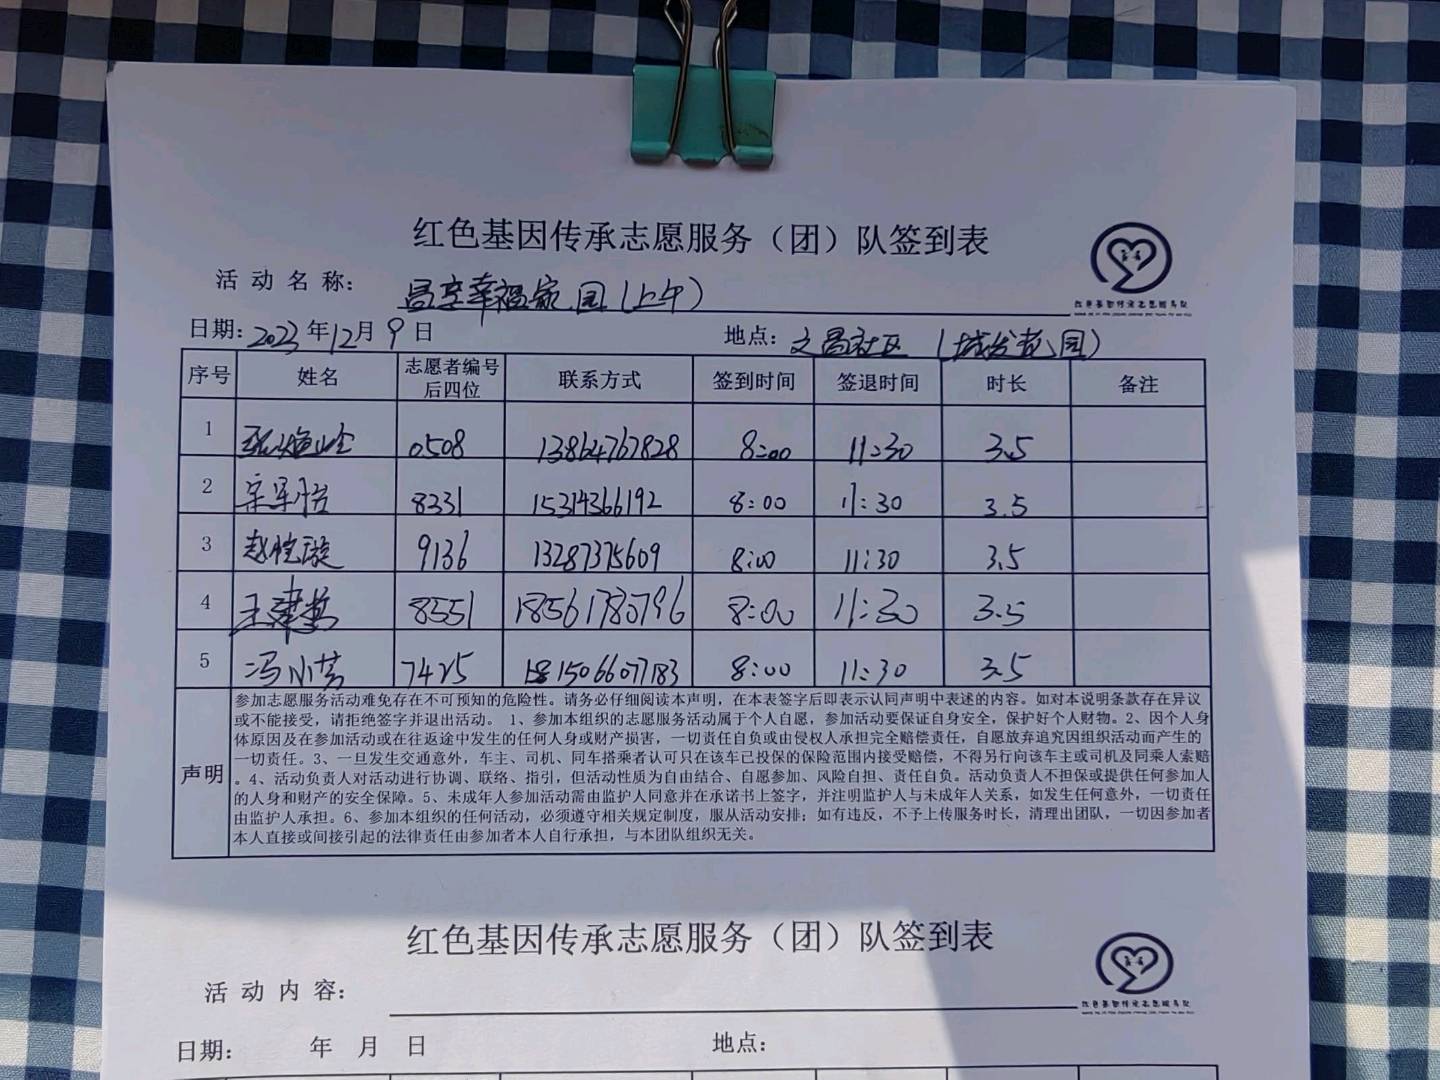 红色基因传承志愿服务（团）队签到表
活动名称： 昌享幸福家园（上午）
日期：2023年12月9日 地点：文昌社区（城发花园）
序号 姓名 志愿者编号后四位 联系方式 签到时间 签退时间 时长 备注
1 0508 13864767828 8:00 11:30 3.5
2 宗军怡 8331 15314366192 8:00 11:30 3.5
3 赵恺璇 9136 13287375609 8:00 11:30 3.5
4 王建芳 8551 18561780796 8:00 11:30 3.5
5 冯小芳 7425 15066077183 8:00 11:30 3.5
声明
参加志愿服务活动难免存在不可预知的危险性。请务必仔细阅读本声明，在本表签字后即表示认同声明中表述的内容。如对本说明条款存在异议
或不能接受，请拒绝签字并退出活动。 1、参加本组织的志愿服务活动属于个人自愿，参加活动要保证自身安全，保护好个人财物。2、因个人身
体原因及在参加活动或在往返途中发生的任何人身或财产损害，一切责任自负或由侵权人承担完全赔偿责任，自愿放弃追究因组织活动而产生的
一切责任。3、一旦发生交通意外，车主、司机、同车搭乘者认可只在该车已投保的保险范围内接受赔偿，不得另行向该车主或司机及同乘人索赔
。4、活动负责人对活动进行协调、联络、指引，但活动性质为自由结合、自愿参加、风险自担、责任自负。活动负责人不担保或提供任何参加人
的人身和财产的安全保障。5、未成年人参加活动需由监护人同意并在承诺书上签字，并注明监护人与未成年人关系，如发生任何意外，一切责任
由监护人承担。6、参加本组织的任何活动，必须遵守相关规定制度，服从活动安排；如有违反，不予上传服务时长，清理出团队，一切因参加者
本人直接或间接引起的法律责任由参加者本人自行承担，与本团队组织无关。
红色基因传承志愿服务（团）队签到表
活动内容：
日期： 年 月 日 地点：